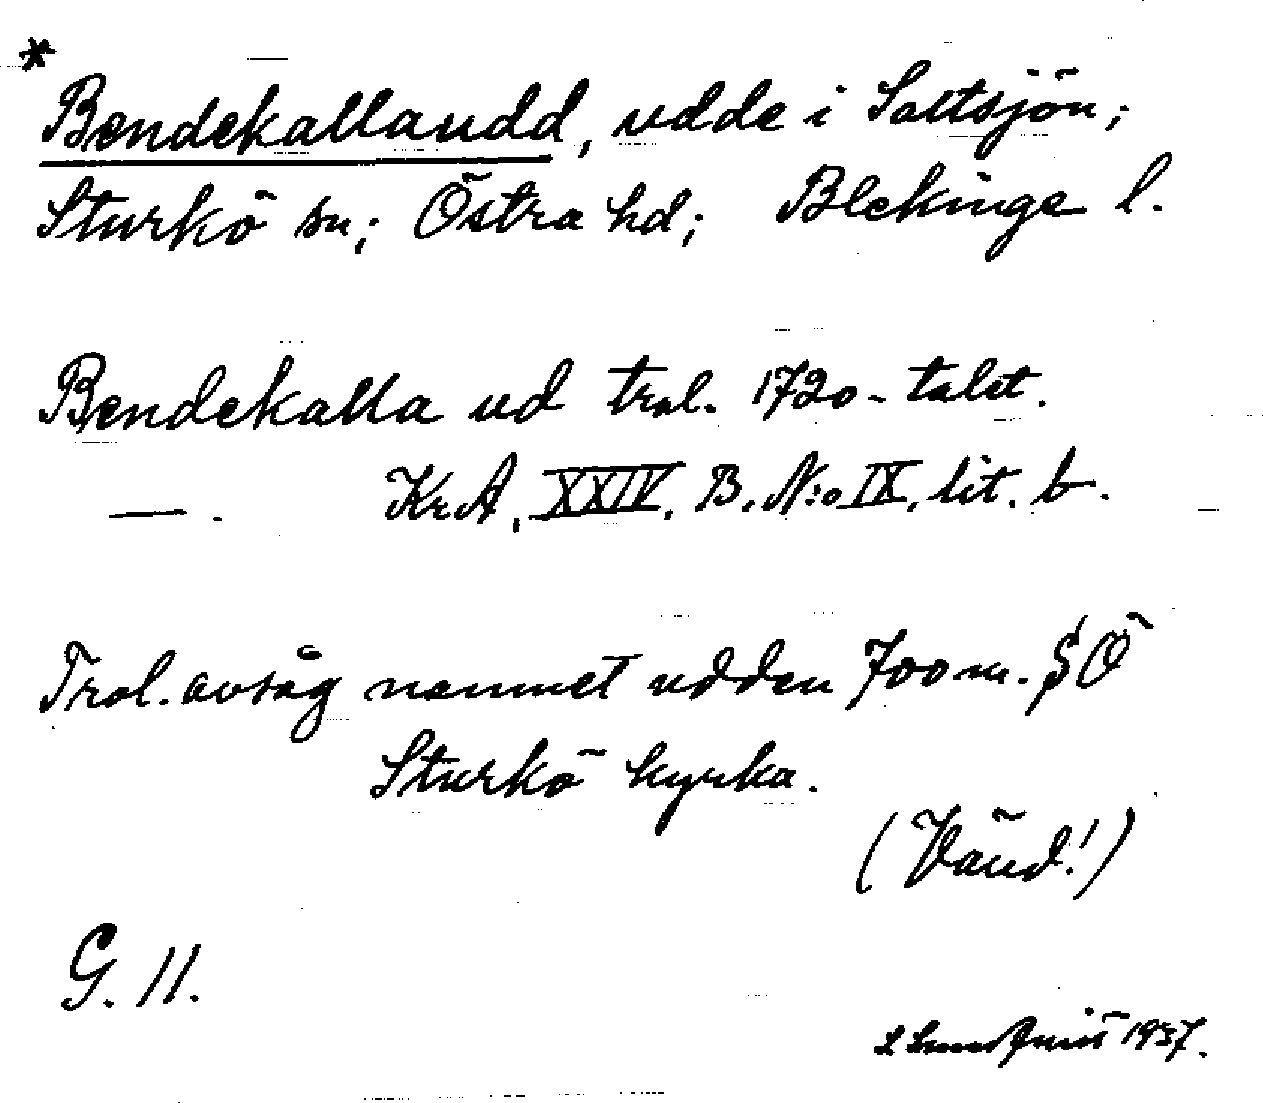 *
Bendekallaudd, udde i Saltsjön;
Sturkö sn; Östra hd; Blekinge l.
Bendekalla ud trol. 1720-talet.
—. KrA, XXIV. B. N:o IX, lit. b.
Trol. avsåg namnet udden 700 m. SÖ
Sturkö kyrka.
(Vänd!)
G. 11.
1937.